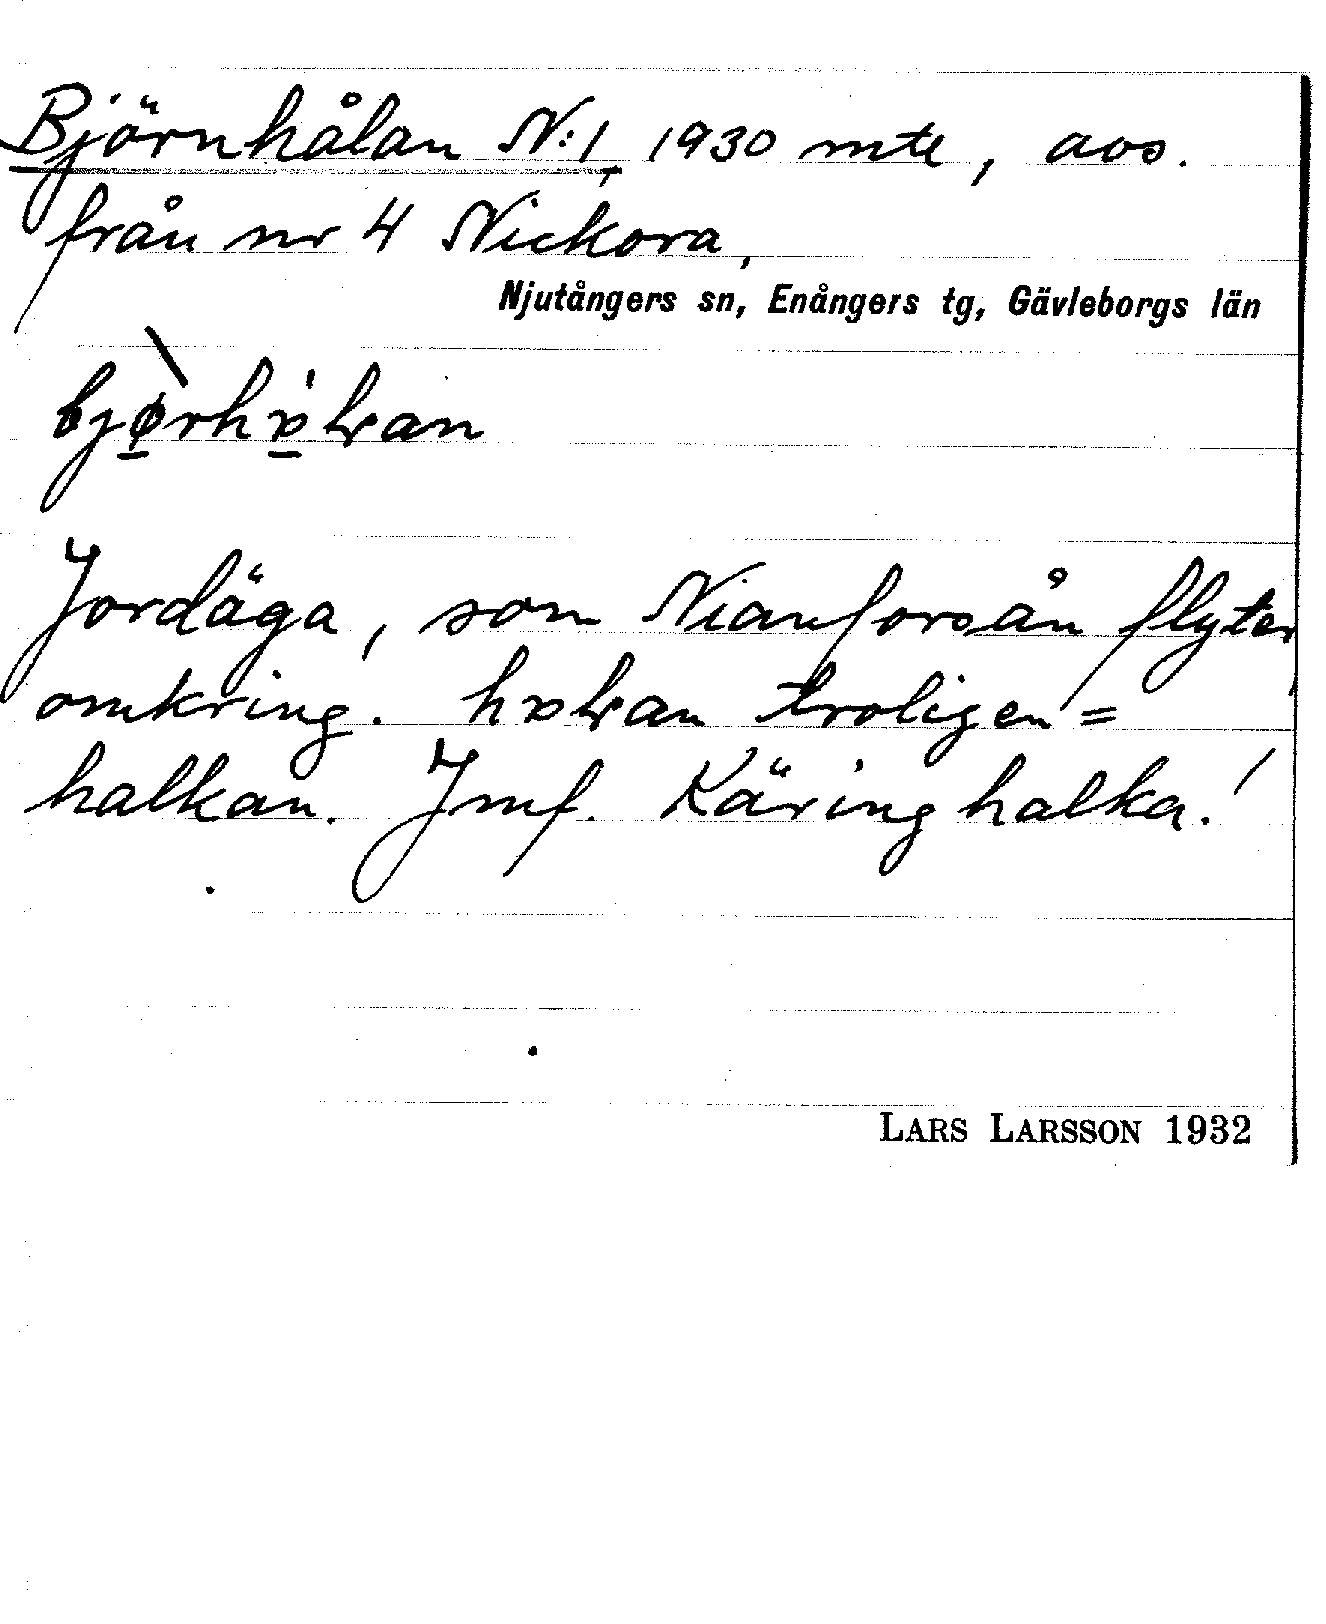 Björnhålan N:1, 1930 mtl, avs.
från nr 4 Nickora,
Njutångers sn, Enångers tg, Gävleborgs län
Jordäga, som Nianforsån flyter
omkring. troligen =
halkan. Jmf. Käringhalka!
LARS LARSSON 1932